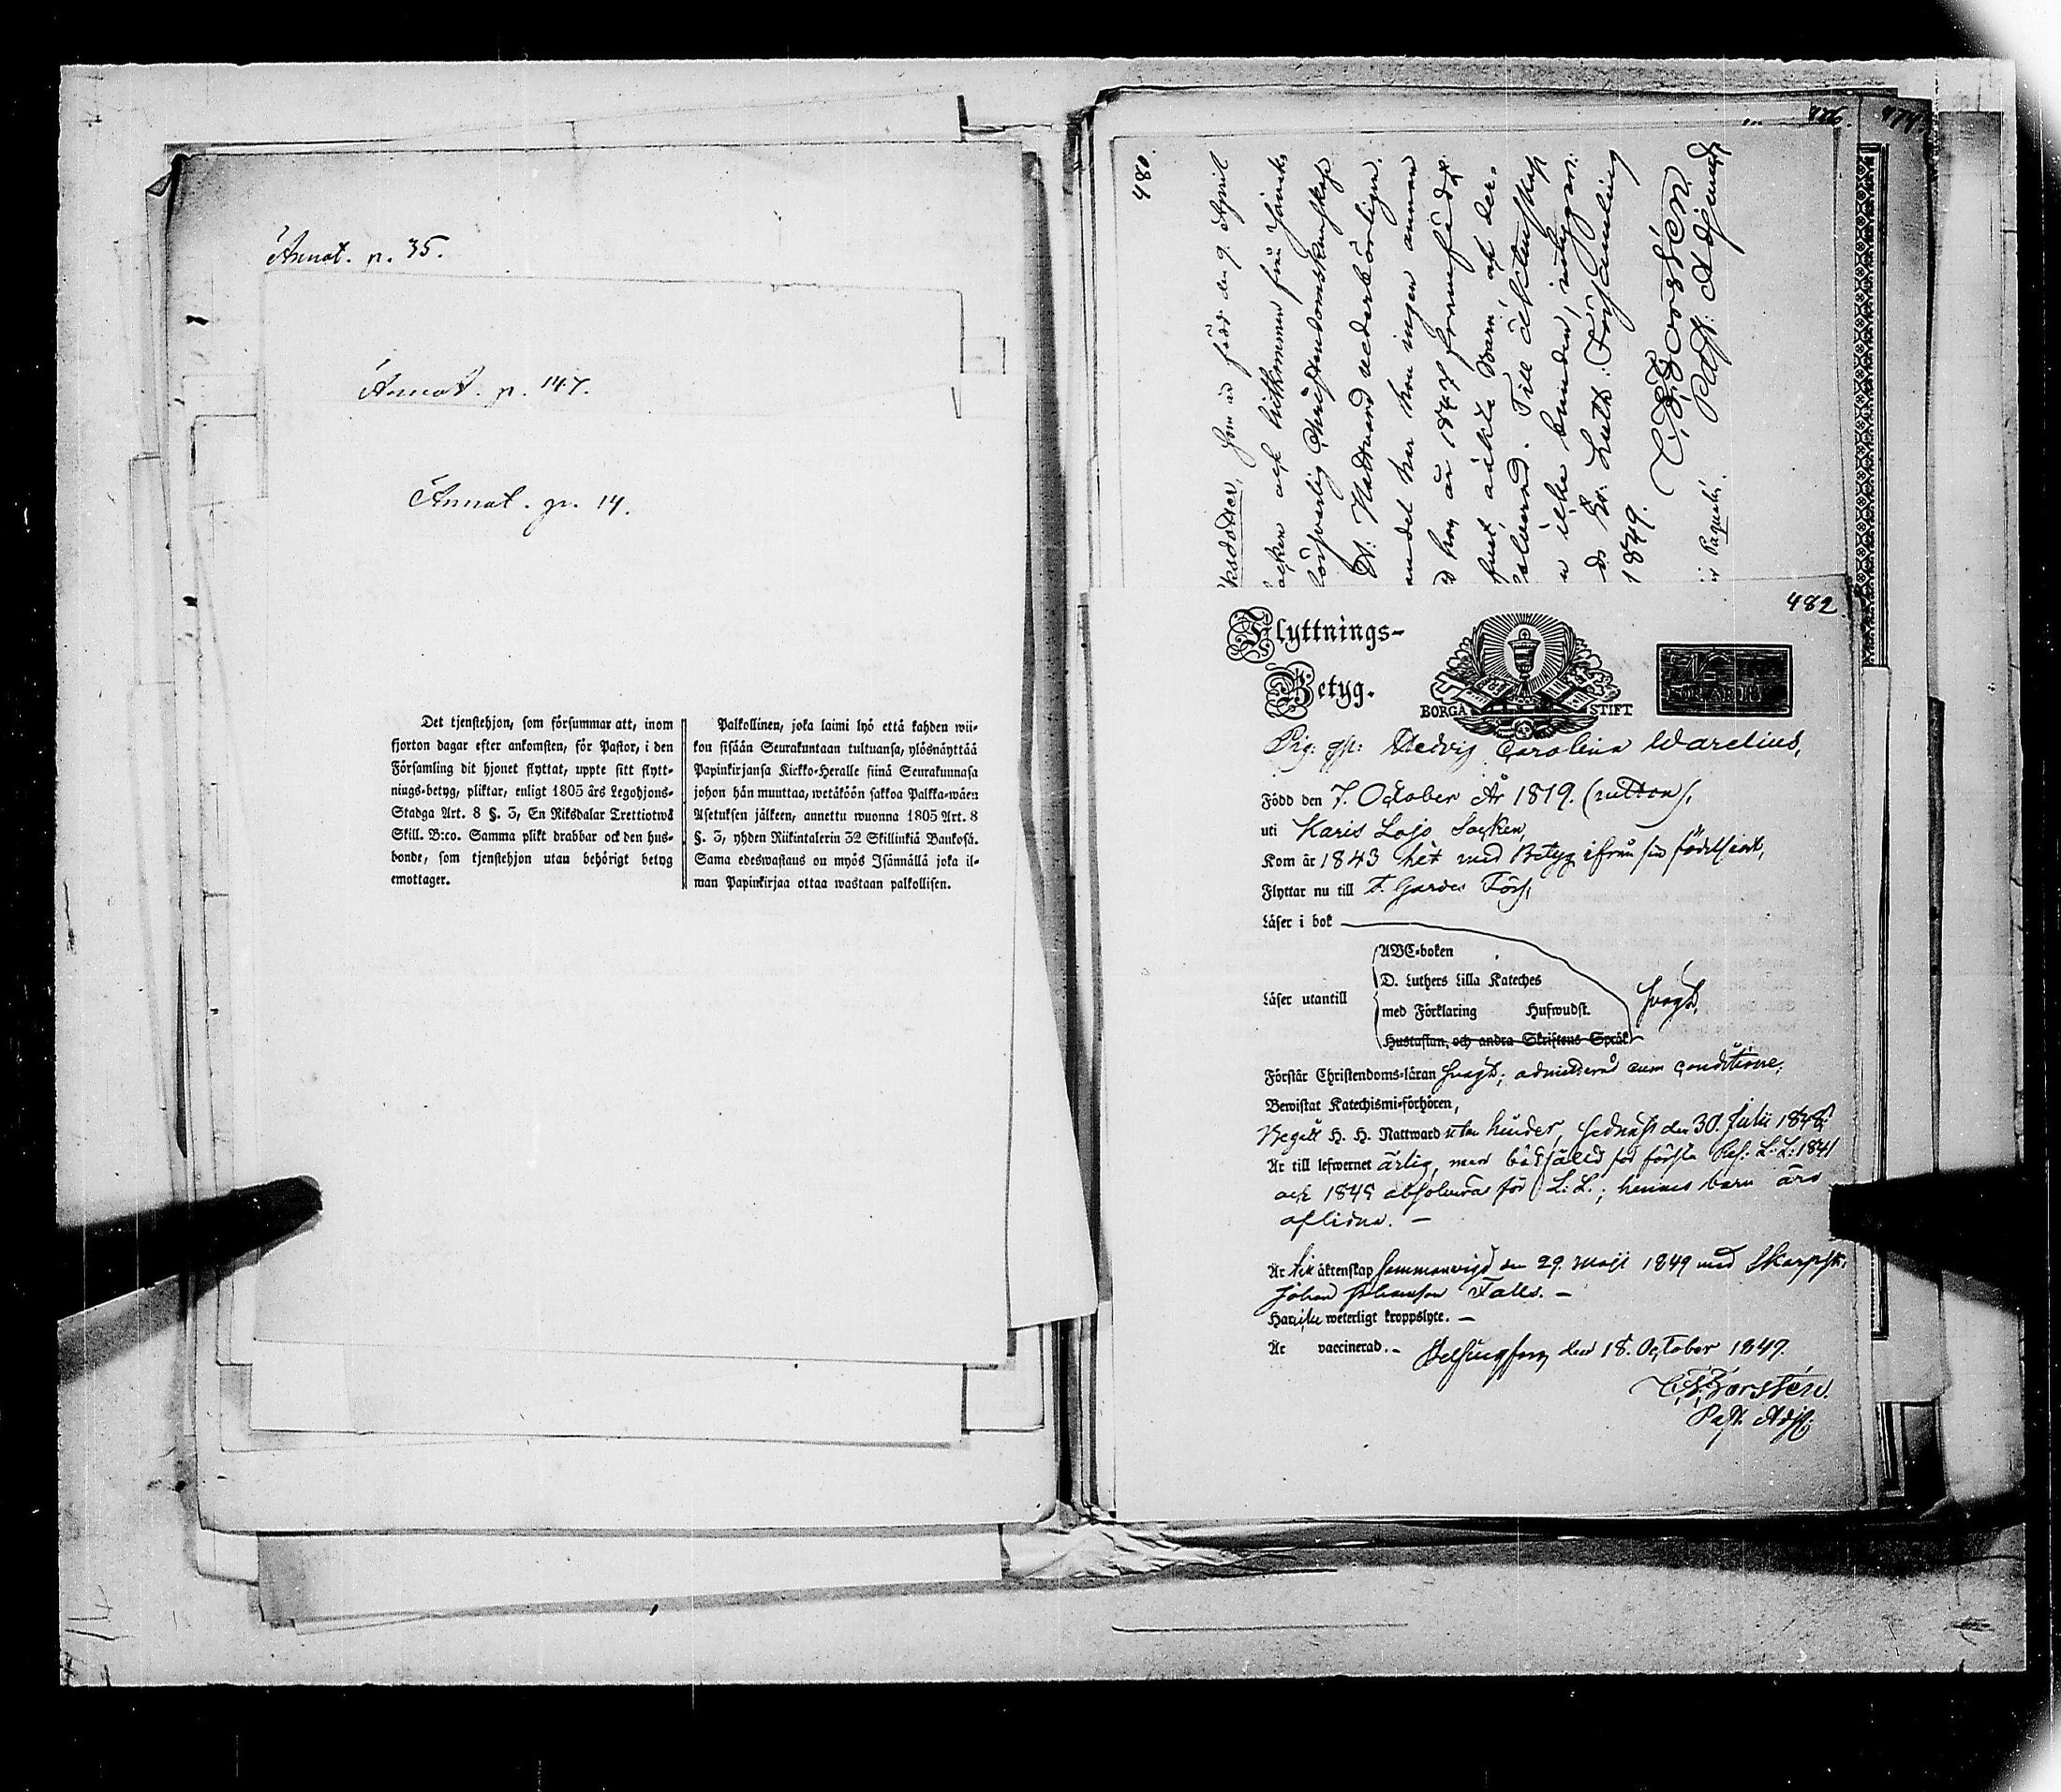 Annot. p. 35.
Annot. p. 147.
Annot. p. 14.
Det tjenstehjon, som försummar att, inom
fjorton dagar efter ankomsten, för Pastor, i den
Församling dit hjonet flyttat, uppte sitt flytt-
nings-betyg, pliktar, enligt 1805 års Legohjons-
Stadga Art. 8 §. 3, En Riksdalar Trettiotwå
Skill. B:co. Samma plikt drabbar ock den hus-
bonde, som tjenstehjon utan behörigt betyg
emottager.
Palkollinen, joka laimi lyö että kahden wii-
kon sisään Seurakuntaan tultuansa, ylösnäyttää
Papinkirjansa Kirkko-Heralle siinä Seurakunnasa
johon hän muuttaa, wetäköön sakkoa Palkka-wäen
Asetuksen jälkeen, annettu wuonna 1805 Art. 8
§. 3, yhden Riikintalerin 32 Skillinkiä Bankosa.
Sama edeswastaus on myös Isännällä joka il-
man Papinkirjaa ottaa wastaan palkollisen.
476. 477.
480.
ksdotter, som är född den 9 April
ocken och hitkommen från
förswarlig Christendomskunskap
H: Nattvard vederbörligen.
andet har hon ingen annan
hon år 1847 framfödt
oäkta Barn, och der-
absolverad. Till äktenskap
n icke bunden,
ds Ev. Luth. Församling
1849.
C. F. Borstén.
Past: Adjunct
482
Flyttnings-
Betyg.
BORGÅ STIFT
Pig: Hedvig Carolina Warelius,
Född den 7. October År 1819. (nitton),
uti Karis Lojo Socken,
Kom år 1843 hit med Betyg ifrån sin födelseort,
Flyttar nu till F. Gardes Förs,
Läser i bok
ABC-boken
D. Luthers Lilla Kateches
Läser utantill
med Förklaring Hufwudst.
svagt,
Hustaflan, och andra Skriftens Språk
Förstår Christendoms-läran svagt; admitterad cum conditione,
Bewistat Katechismi-förhören,
Begått H. H. Nattward utan hinder, sednast den 30. Julii 1848;
Är till lefwernet ärlig, men för första L: L: 1841
och 1845 absolverad för L: L.; hennes barn äro
aflidna. —
Är till äktenskap sammanvigd den 29. Maji 1849 med Skarpsk:
Johan Johansson Falls. —
Har icke weterligt kroppslyte. —
Är vaccinerad. — Helsingfors den 18. October 1849.
C. F. Borstén.
Past. Adj: